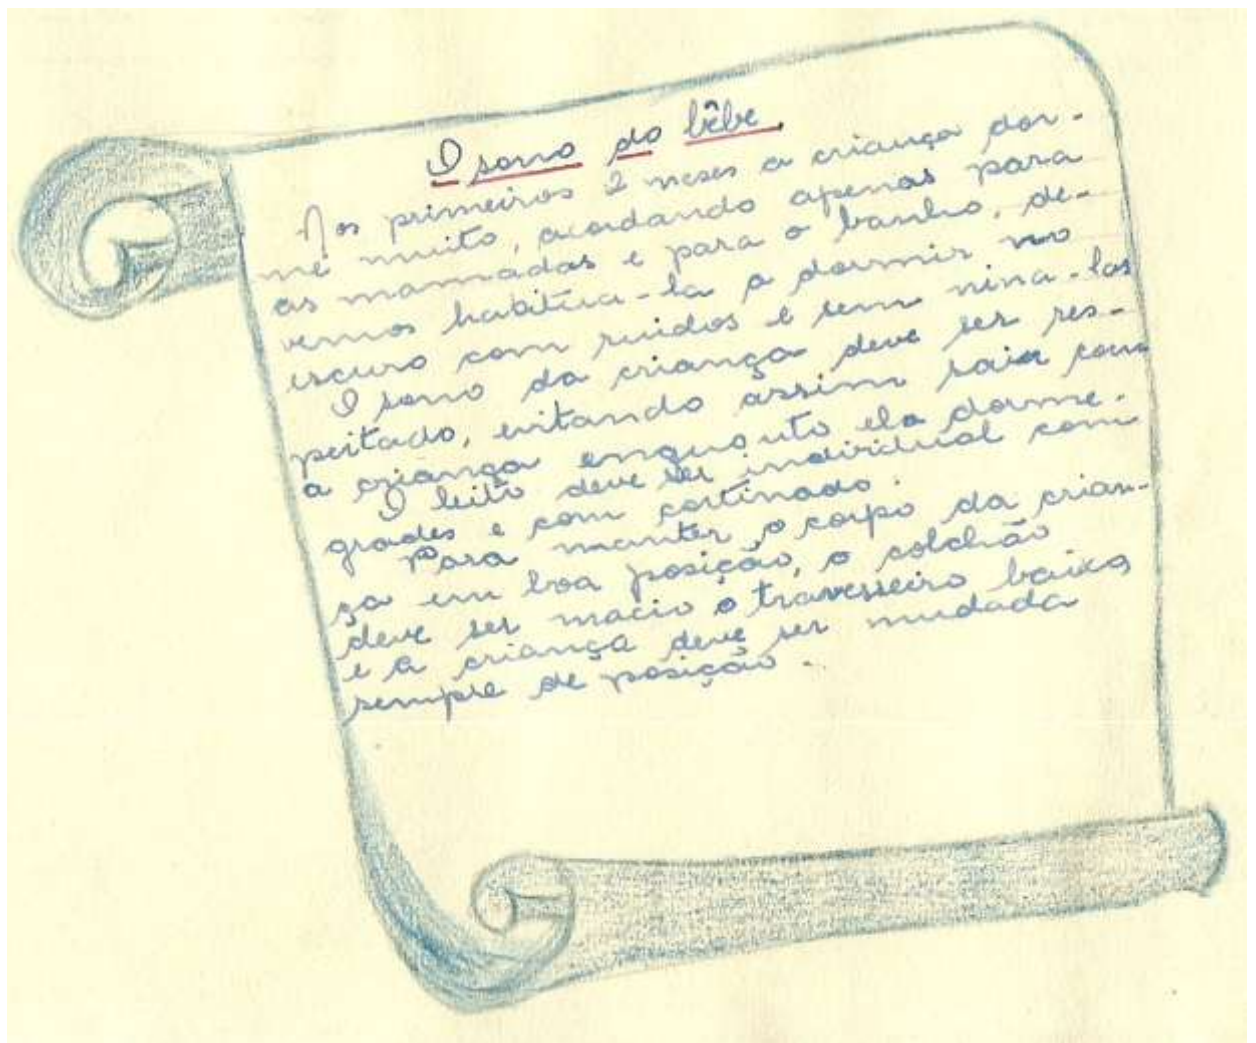 O sono do bêbe
Nos primeiros 2 meses a criança dor-
me muito, acordando apenas para
as mamadas e para o banho, de-
vemos habitua-la a dormir no
escuro com ruidos e sem nina-las
O sono da criança deve ser res-
peitado, evitando assim sair com
a criança enquanto ela dorme.
O leito deve ser individual com
grades e com cortinado.
Para manter o corpo da crian-
ça em boa posição, o colchão
deve ser macio o travesseiro baixo
e a criança deve ser mudada
sempre de posição.